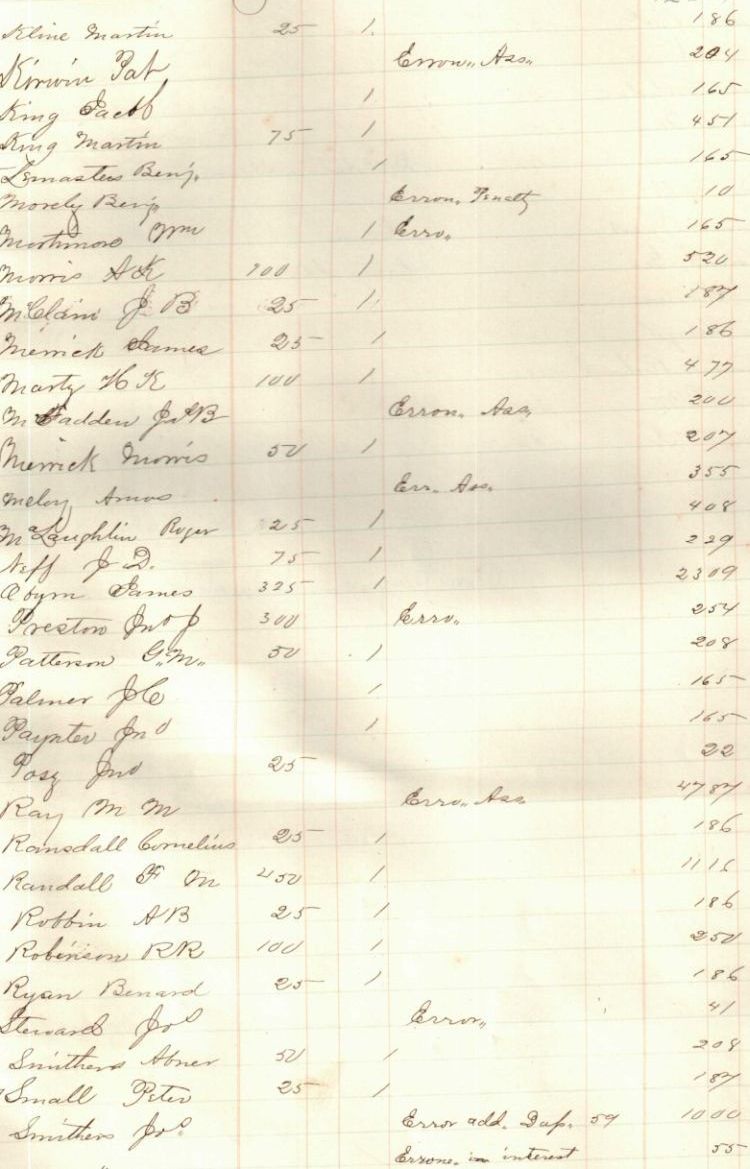 Kline Martin 25 1. 186
Kirwin Pat Erron,, Ass,, 204
King Jacob 1 165
King Martin 75 1 451
Lemasters Benj. 1 165
Morely Benj Erron,, Penalty 10
Mortimore Wm 1 Erro,, 165
Morris A K 100 1 520
McClain J B 25 1 187
Merrick James 25 1 186
Marty H K 100 1 477
McFadden J B Erron,, Ass,, 200
Merrick Morris 50 1 207
Meloy Amos Err. Ass. 355
McLaughlin Roger 25 1 408
Neff J D. 75 1 229
Obyrn James 325 1 2309
Preston Jno J 300 Erro,, 254
Patterson G.,M,, 50 1 208
Palmer J C 1 165
Paynter Jno 1 165
Posy Jno 25 22
Ray M M Erro,, Ass 4787
Ramsdall Cornelius 25 1 186
Randall F M 450 1 1116
Robbin A B 25 1 186
Robinson R R 100 1 250
Ryan Benard 25 1 186
Steward Jos Error,, 41
Smithers Abner 50 1 208
Small Peter 25 1 187
Smithers Jos Error add. Dup. 59 1000
Errone. in interest 55